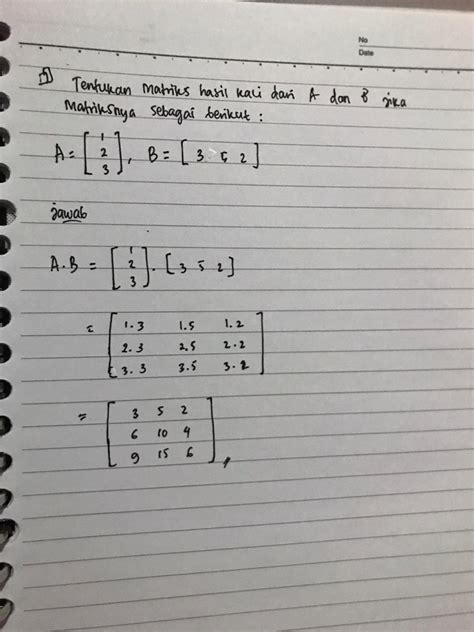 No
Date
5) Tentukan Matriks hasil kali dari A dan B jika
Matriksnya sebagai berikut :
A = [ 1 2 3 ] , B = [ 3 5 2 ]
jawab
A.B = [ 1 2 3 ] . [ 3 5 2 ]
= [ 1.3 1.5 1.2
2.3 2.5 2.2
3.3 3.5 3.2 ]
= [ 3 5 2
6 10 4
9 15 6 ] ,